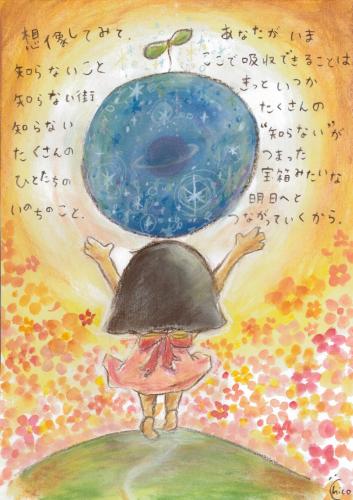 想像してみて.
知らないこと
知らない街
知らない
たくさんの
ひとたちの
いのちのこと.
あなたがいま
ここで吸収できることは
きっといつか
たくさんの
"知らない"が
つまった
宝箱みたいな
明日へと
つながっていくから.
Chico